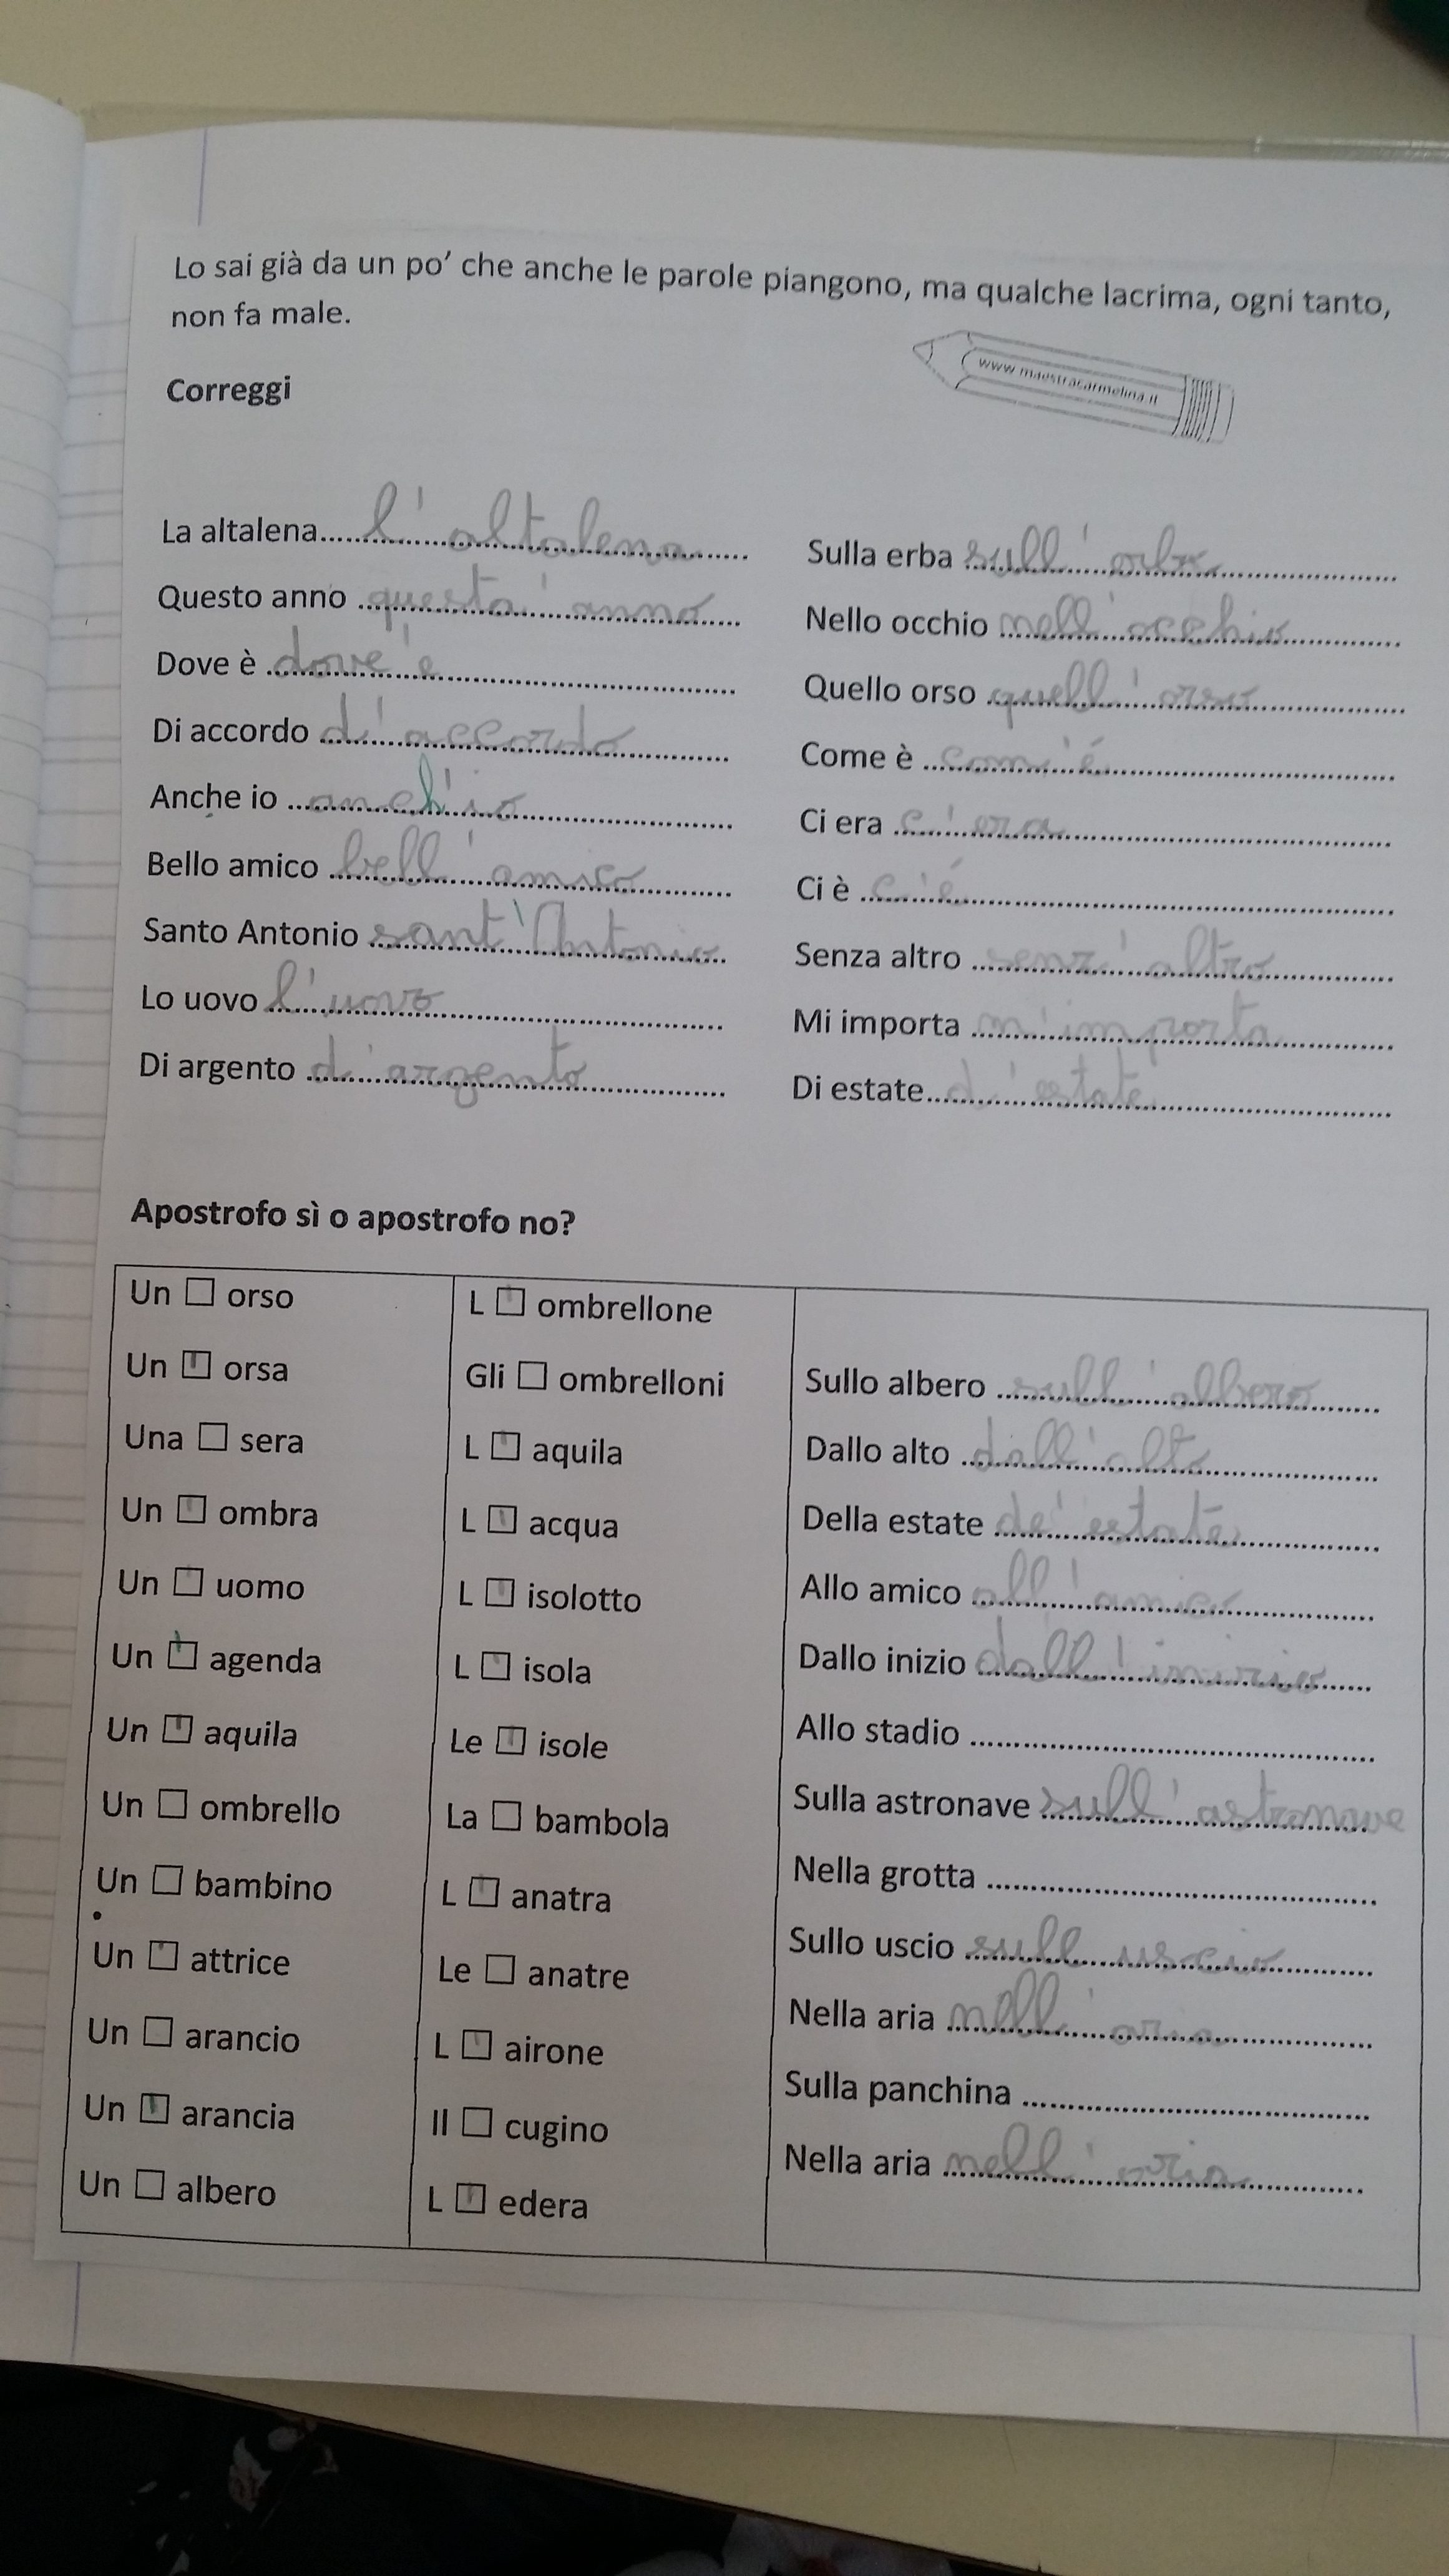 Lo sai già da un po' che anche le parole piangono, ma qualche lacrima, ogni tanto,
non fa male.
www.maestracarmelina.it
Correggi
La altalena..... l'altalena
Questo anno ..... questo' anno
Dove è ..... dove'e
Di accordo ..... d'accordo
Anche io ..... anch'io
Bello amico ..... bell'amico
Santo Antonio ..... sant'Antonio
Lo uovo ..... l'uovo
Di argento ..... d'argento
Sulla erba ..... sull'erba
Nello occhio ..... nell'occhio
Quello orso ..... quell'orso
Come è ..... com'é
Ci era ..... c'era
Ci è ..... c'é
Senza altro ..... senz'altro
Mi importa ..... m'importa
Di estate..... d'estate
Apostrofo sì o apostrofo no?
Un □ orso
Un ' orsa
Una □ sera
Un ' ombra
Un □ uomo
Un ' agenda
Un ' aquila
Un □ ombrello
Un □ bambino
Un ' attrice
Un □ arancio
Un ' arancia
Un □ albero
L ' ombrellone
Gli □ ombrelloni
L ' aquila
L ' acqua
L ' isolotto
L ' isola
Le ' isole
La □ bambola
L ' anatra
Le □ anatre
L ' airone
Il □ cugino
L ' edera
Sullo albero ..... sull'albero
Dallo alto ..... dall'alto
Della estate ..... de'estate
Allo amico ..... all'amico
Dallo inizio ..... dall'inizio
Allo stadio .....
Sulla astronave ..... sull'astronave
Nella grotta .....
Sullo uscio ..... sull uscio
Nella aria ..... nell'aria
Sulla panchina .....
Nella aria ..... nell'aria